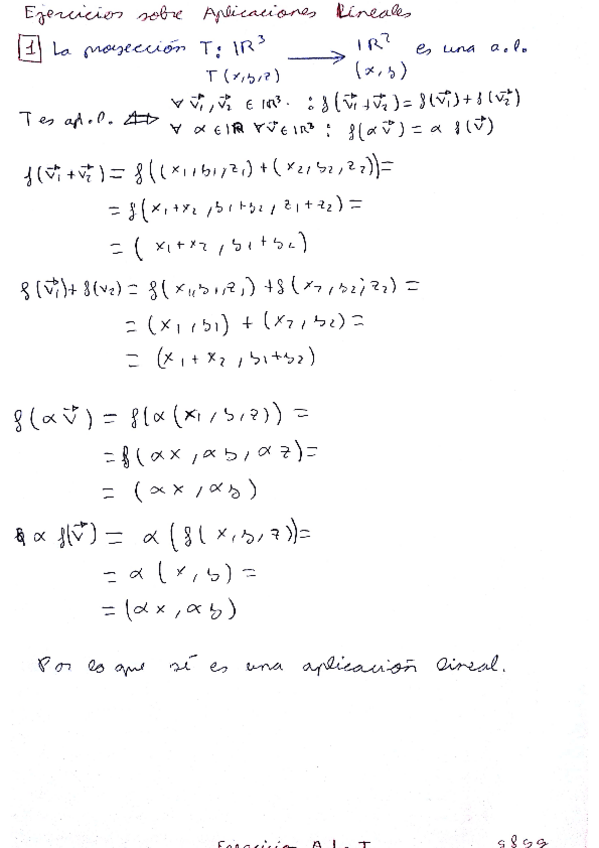 Ejercicios sobre Aplicaciones Lineales
1 La proyección T: IR³ ⟶ IR² es una a.l.
T(x,y,z) (x,y)
T es ap.l. ⟺ ∀ v⃗₁, v⃗₂ ∈ IR³ : f(v⃗₁+v⃗₂) = f(v⃗₁) + f(v⃗₂)
∀ α ∈ IR ∀ v⃗ ∈ IR³ : f(αv⃗) = α f(v⃗)
f(v⃗₁+v⃗₂) = f((x₁,y₁,z₁)+(x₂,y₂,z₂)) =
= f(x₁+x₂, y₁+y₂, z₁+z₂) =
= (x₁+x₂, y₁+y₂)
f(v⃗₁)+f(v₂) = f(x₁,y₁,z₁) + f(x₂,y₂,z₂) =
= (x₁,y₁) + (x₂,y₂) =
= (x₁+x₂, y₁+y₂)
f(αv⃗) = f(α(x,y,z)) =
= f(αx, αy, αz) =
= (αx, αy)
α f(v⃗) = α(f(x,y,z)) =
= α(x,y) =
= (αx, αy)
Por lo que sí es una aplicación lineal.